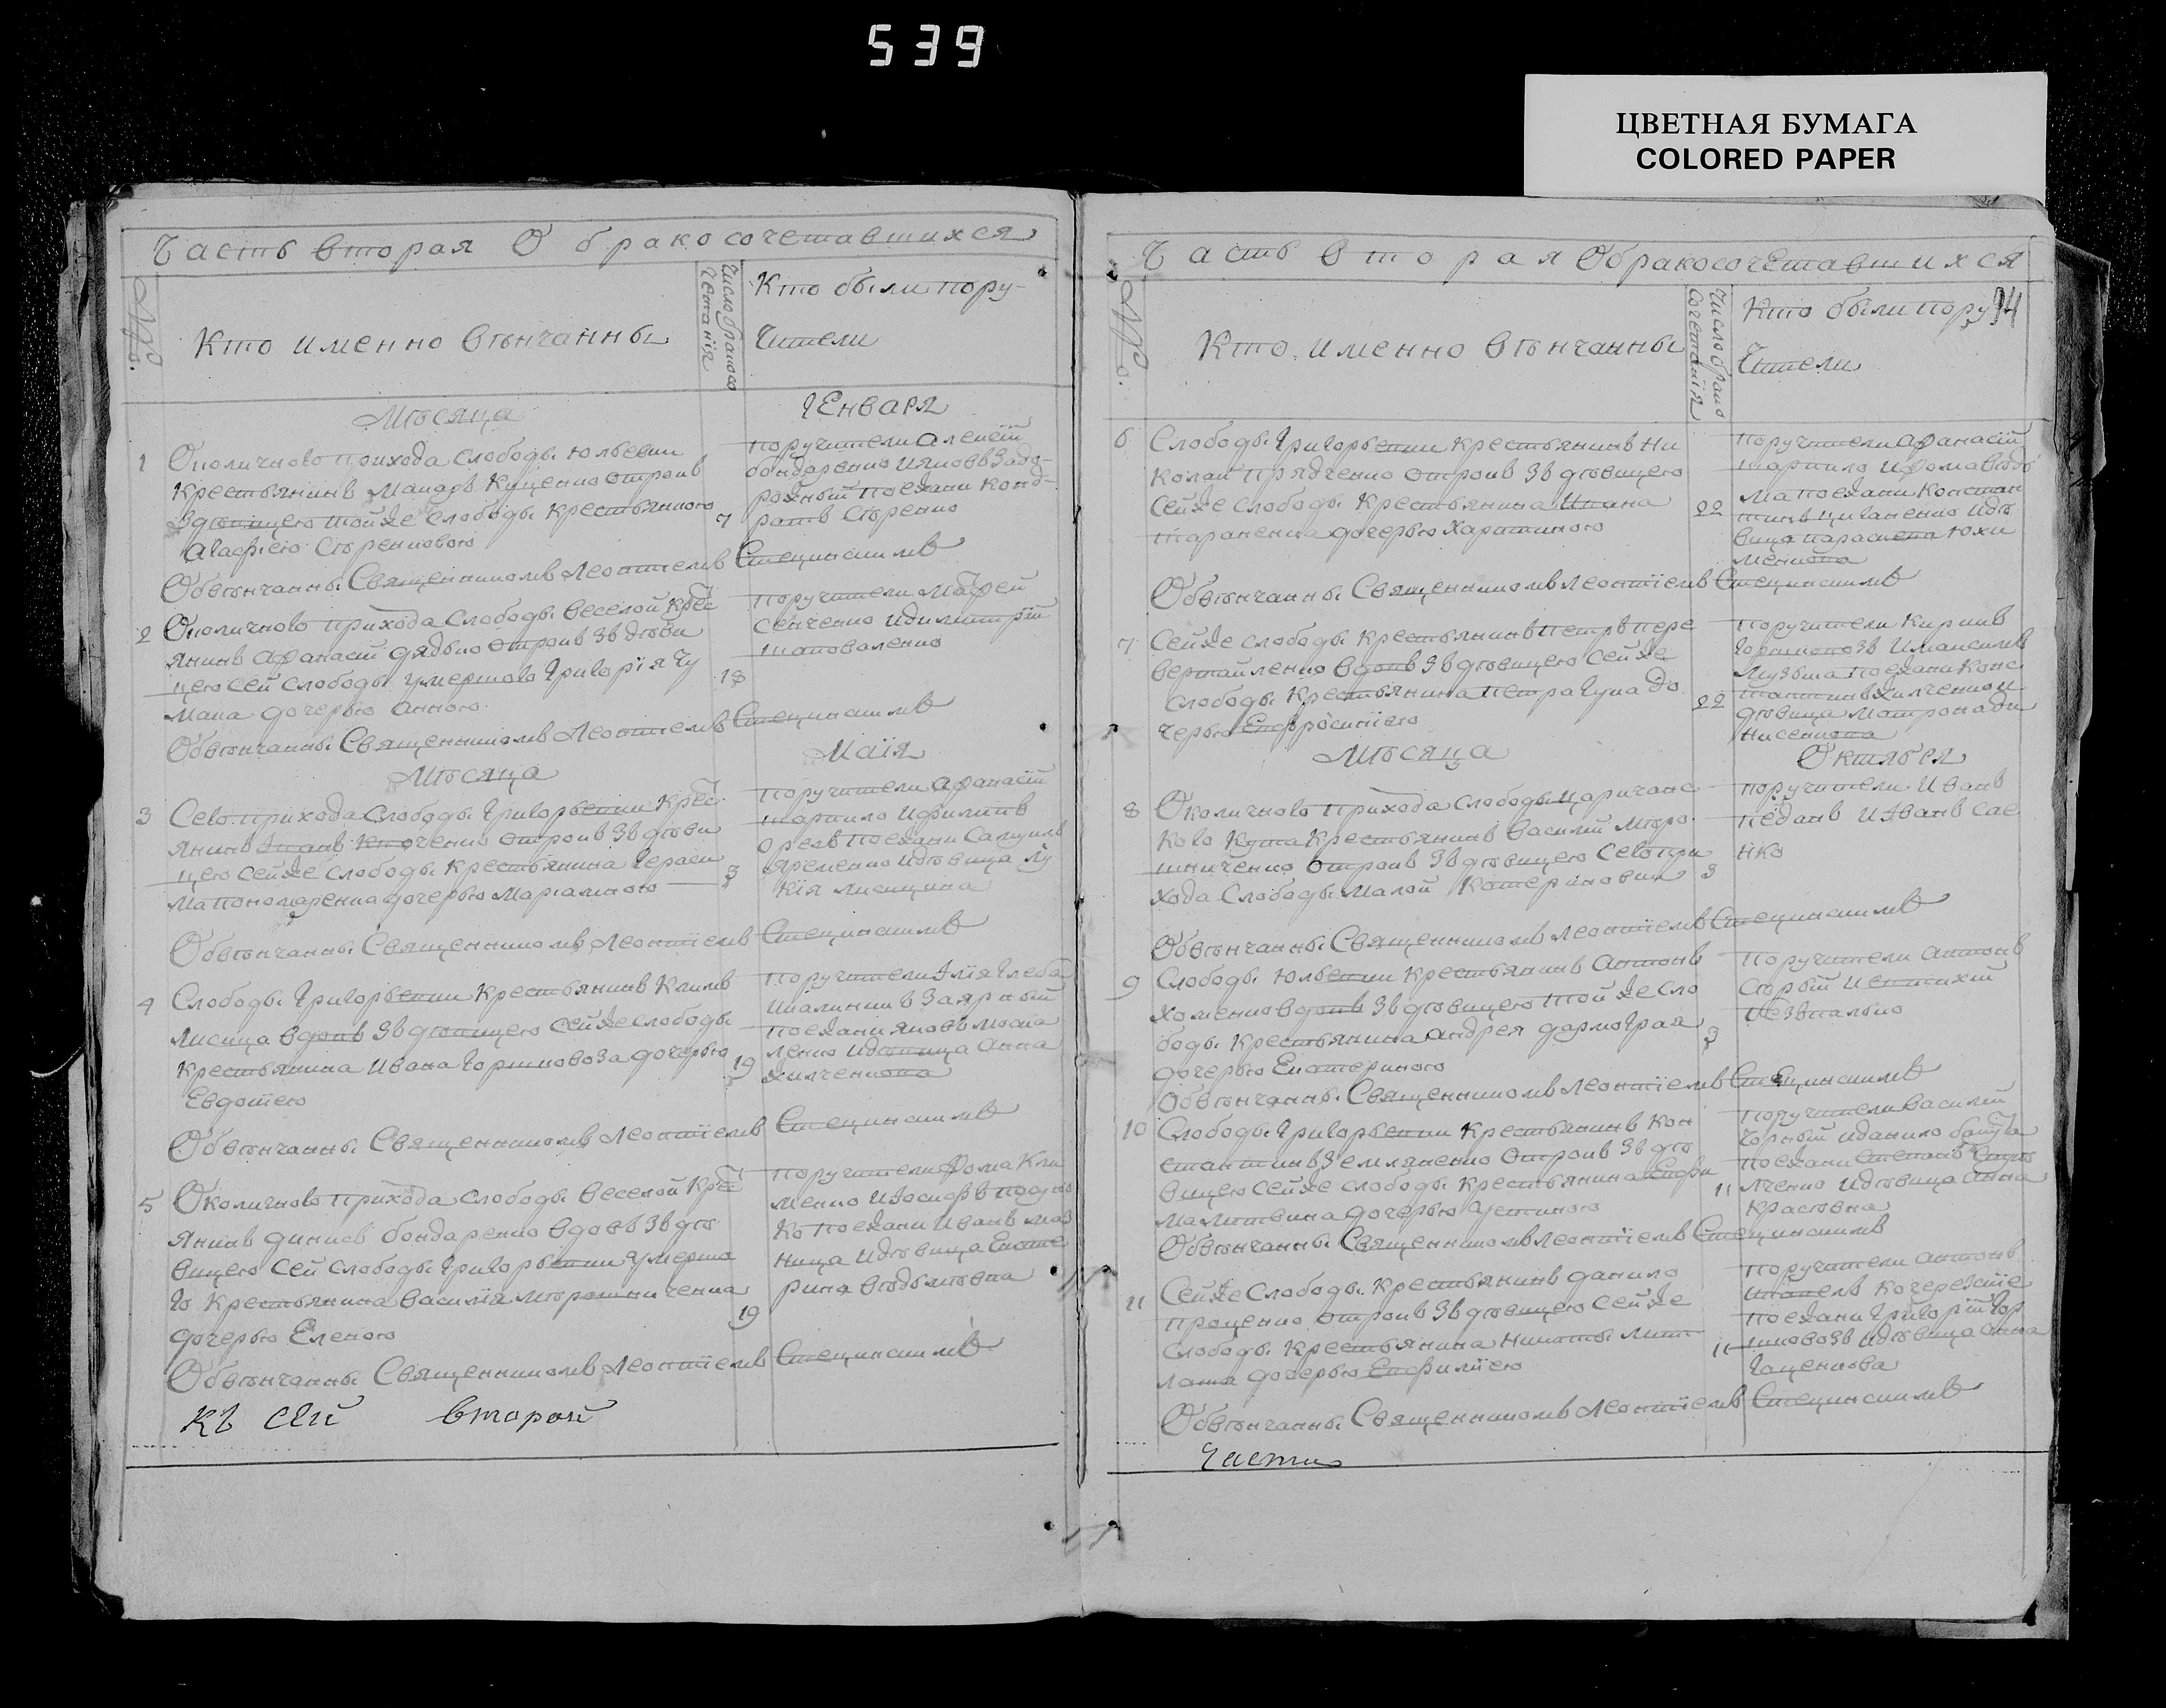 539
ЦВЕТНАЯ БУМАГА
COLORED PAPER
Часть вторая О бракосочетавшихся
Кто именно вѣнчанны
Число брачнаго
сочетанія
Кто были пору-
чители
Мѣсяца
Генваря
1
Околичного прихода слободы Юльевки
крестьянинъ Макаръ Куценко отрокъ
здѣвицею тойже слободы крестьянкою
Агафіею
7
поручители Алексій
бондаренко и Яковъ Задо-
рожный поезжани Конд-
ратъ
Обвѣнчанны Священникомъ Леонтіемъ Стецинскимъ
2
Околичного прихода слободы веселой крес
янинъ Афанасій дядько отрокъ зъ дѣви
цею сей слободы умершого Григорія Чу
мака дочерью Анною
18
поручители
Сенченко и Димитрій
шаповаленко
Обвѣнчанны Священникомъ Леонтіемъ Стецинскимъ
Мѣсяца
Маія
3
Сего прихода Слободы Григорьевки крес
янинъ отрокъ зъ дѣви
цею сейже слободы крестьянина Гераси
ма пономаренка дочерью Маріамною
3
поручители Афанасій
шаршило и филипъ
орелъ поезжани Самуилъ
яременко и дѣвица Лу
кія лисицина
Обвѣнчанны Священникомъ Леонтіемъ Стецинскимъ
4
Слободы Григорьевки крестьянинъ Климъ
лисица вдовъ зъ дѣвицею сейже слободы
крестьянина Ивана Горшковоза дочерью
Евдокіею
19
поручители Илія Глеба
и Калиникъ Заярный
поезжани Яковъ
ленко и дѣвица Анна
хилченкова
Обвѣнчанны Священникомъ Леонтіемъ Стецинскимъ
5
Околичного прихода слободы веселой крес
янинъ бондаренко вдовъ зъ дѣ
вицею сей слободы Григорьевки умерша
го крестьянина василія мѣрошниченка
дочерью Еленою
19
поручители Фома Кли
менко и Іосифъ
ко поезжани Иванъ маз
ница и дѣвица Екате
рина
Обвѣнчанны Священникомъ Леонтіемъ Стецинскимъ
къ сей второй
Часть вторая О бракосочетавшихся
Кто именно вѣнчанны
Число брачно
сочетанія
Кто были пору
чители
94
6
Слободы Григорьевки крестьянинъ Ни
колай прядченко отрокъ зъ дѣвицею
сейже слободы крестьянина Ивана
тараненка дочерью Харитиною
22
поручители Афанасій
шаршило и фома
ма поезжани констан
тинъ циганенко и дѣ
вица параскева юхи
менкова
Обвѣнчанны Священникомъ Леонтіемъ Стецинскимъ
7
Сейже слободы крестьянинъ петръ пере
вертайленко вдовъ зъ дѣвицею сейже
слободы крестьянина петра Гупа до
черью Евфросиніею
22
поручители Кирикъ
Горшковозъ и Максимъ
Музыка поезжани конс
тантинъ хилченко и
дѣвица матрона де
нисенкова
Мѣсяца
Октября
8
Околичного прихода слободы царичанс
кого Кута крестьянинъ василій мѣро
шниченко отрокъ зъ дѣвицею сего при
хода слободы малой Катериновки
3
поручители Иванъ
педанъ и Иванъ сае
нко
Обвѣнчанны Священникомъ Леонтіемъ Стецинскимъ
9
Слободы Юльевки крестьянинъ Антонъ
хоменко вдовъ зъ дѣвицею тойже сло
боды крестьянина Андрея дармограя
дочерью Екатериною
3
поручители Антонъ
старый и Евтихій
Обвѣнчанны Священникомъ Леонтіемъ Стецинскимъ
10
Слободы Григорьевки крестьянинъ кон
стантинъ Земляненко отрокъ зъ дѣ
вицею сейже слободы крестьянина Евфи
ма литвина дочерью Устиною
11
поручители василій
Чорный и данило
поезжани Степанъ
лченко и дѣвица Анна
Красовна
Обвѣнчанны Священникомъ Леонтіемъ Стецинскимъ
11
Сейже Слободы крестьянинъ данило
проценко отрокъ зъ дѣвицею сейже
слободы крестьянина никиты
дочерью Евфиміею
11
поручители Антонъ
и Павелъ кочережкіе
поезжани Григорій Гор
шковозъ и дѣвица Анна
Гаценкова
Обвѣнчанны Священникомъ Леонтіемъ Стецинскимъ
Части